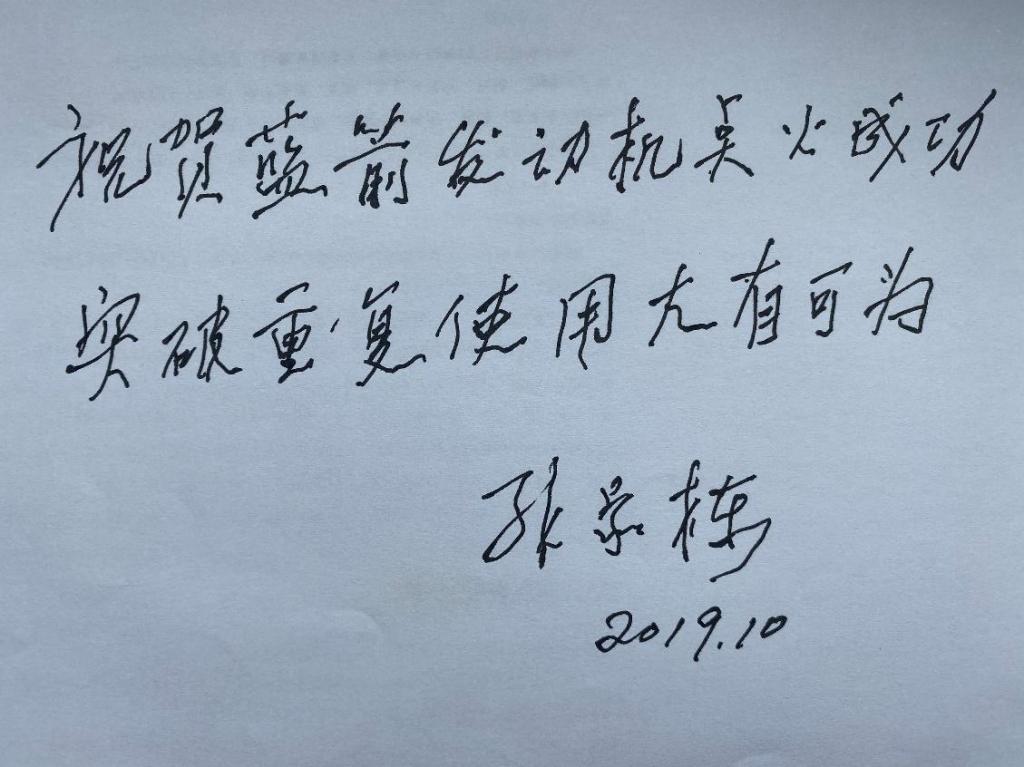 祝贺蓝箭发动机点火成功
突破重复使用大有可为
孙家栋
2019.10